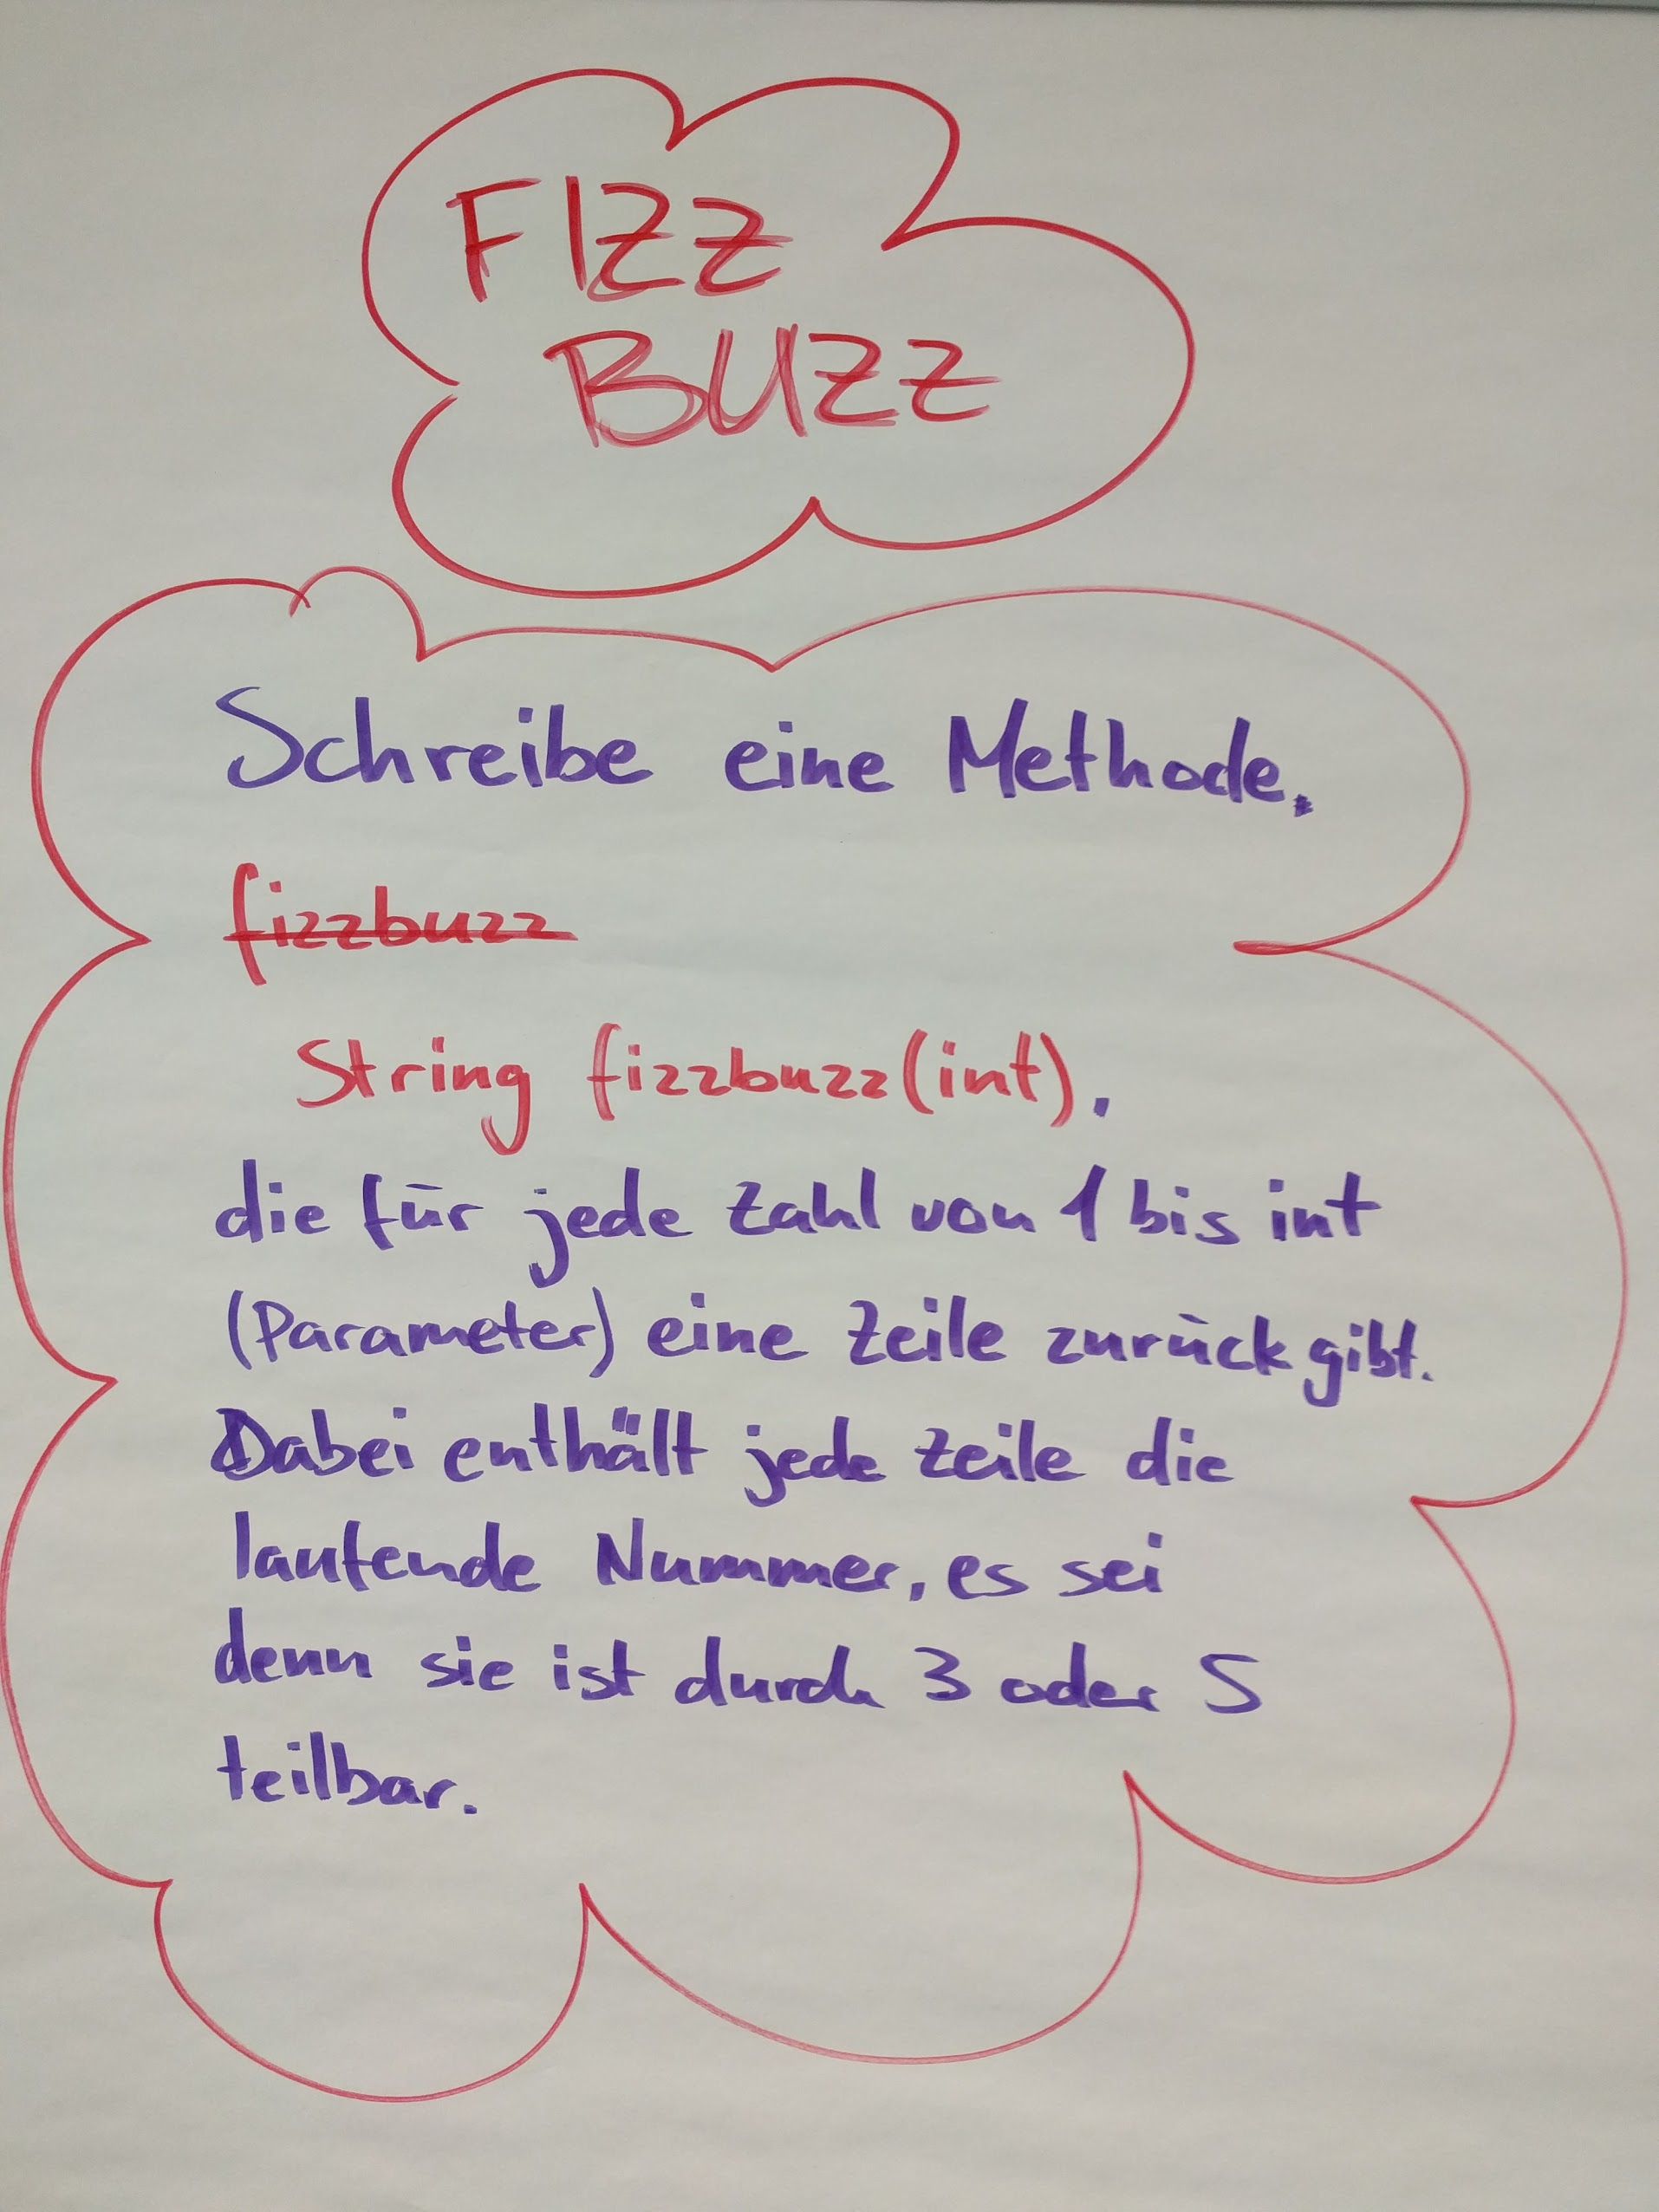 FIZZ
BUZZ
Schreibe eine Methode.
fizzbuzz
String fizzbuzz(int).
die für jede Zahl von 1 bis int
(Parameter) eine Zeile zurück gibt.
Dabei enthält jede Zeile die
laufende Nummer, es sei
denn sie ist durch 3 oder 5
teilbar.